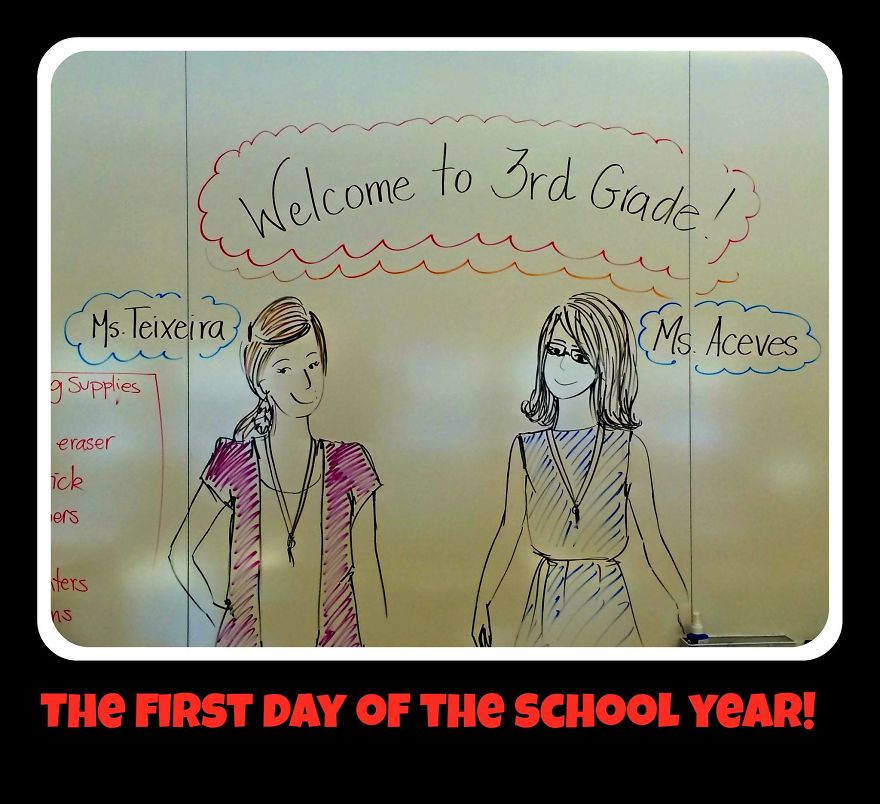 Welcome to 3rd Grade!
Ms. Teixeira
Ms. Aceves
g Supplies
eraser
ick
ers
ters
ns
THE FIRST DAY OF THE SCHOOL YEAR!